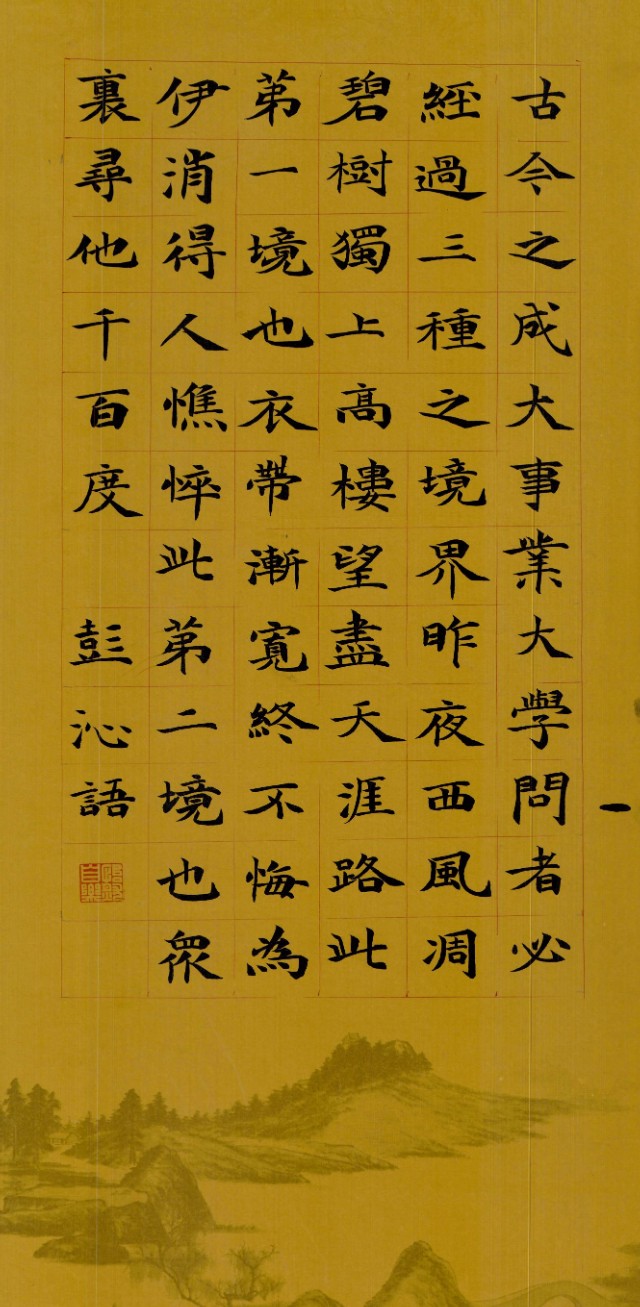 古今之成大事業大學問者必
經過三種之境界昨夜西風凋
碧樹獨上高樓望盡天涯路此
第一境也衣帶漸寬終不悔為
伊消得人憔悴此第二境也眾
裏尋他千百度
彭沁語